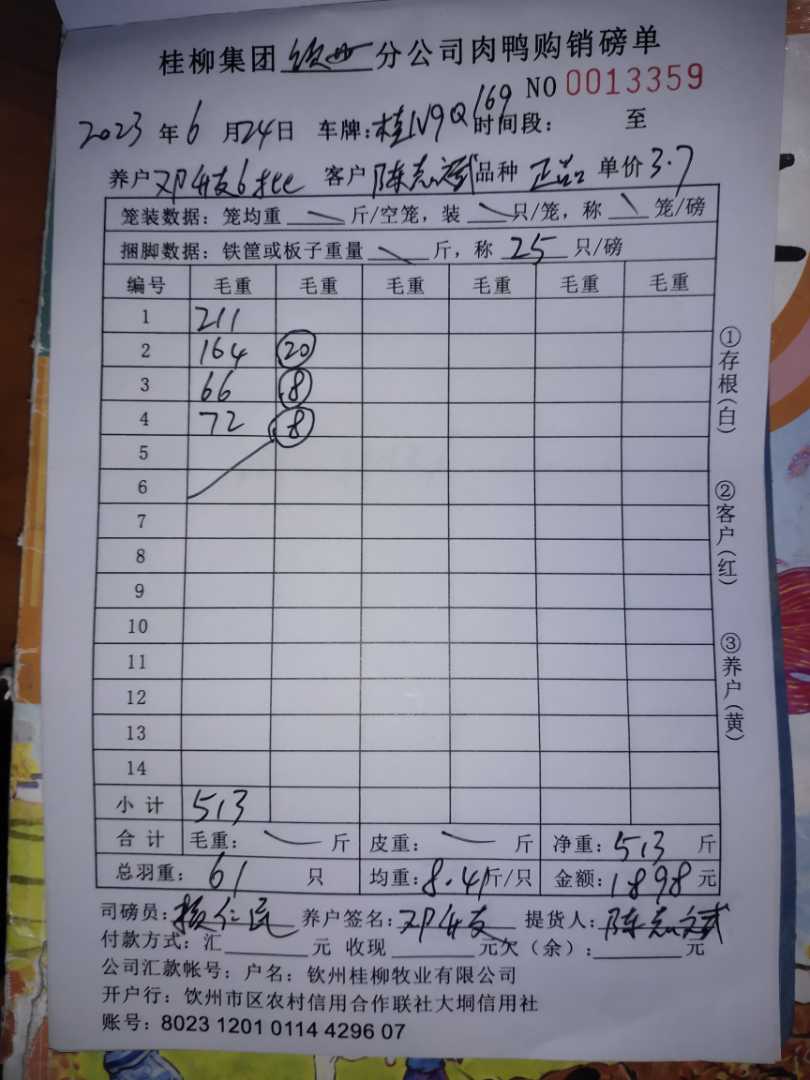 桂柳集团 钦州 分公司肉鸭购销磅单
NO 0013359
2023 年 6 月 24 日 车牌: 桂N9Q169 时间段: 至
养户 邓 友6 客户 陈志斌 品种 正品 单价 3.7
笼装数据: 笼均重 斤/空笼, 装 只/笼, 称 笼/磅
捆脚数据: 铁筐或板子重量 斤, 称 25 只/磅
编号 毛重 毛重 毛重 毛重 毛重 毛重
1 211
2 164 20
3 66 8
4 72 8
5
6
7
8
9
10
11
12
13
14
小 计 513
合 计 毛重: 斤 皮重: 斤 净重: 513 斤
总羽重: 61 只 均重: 8.41 斤/只 金额: 1898 元
司磅员: 仁民 养户签名: 邓 友 提货人: 陈志斌
付款方式: 汇 元 收现 元欠(余): 元
公司汇款帐号: 户名: 钦州桂柳牧业有限公司
开户行: 钦州市区农村信用合作联社大垌信用社
账号: 8023 1201 0114 4296 07
①存根(白)
②客户(红)
③养户(黄)